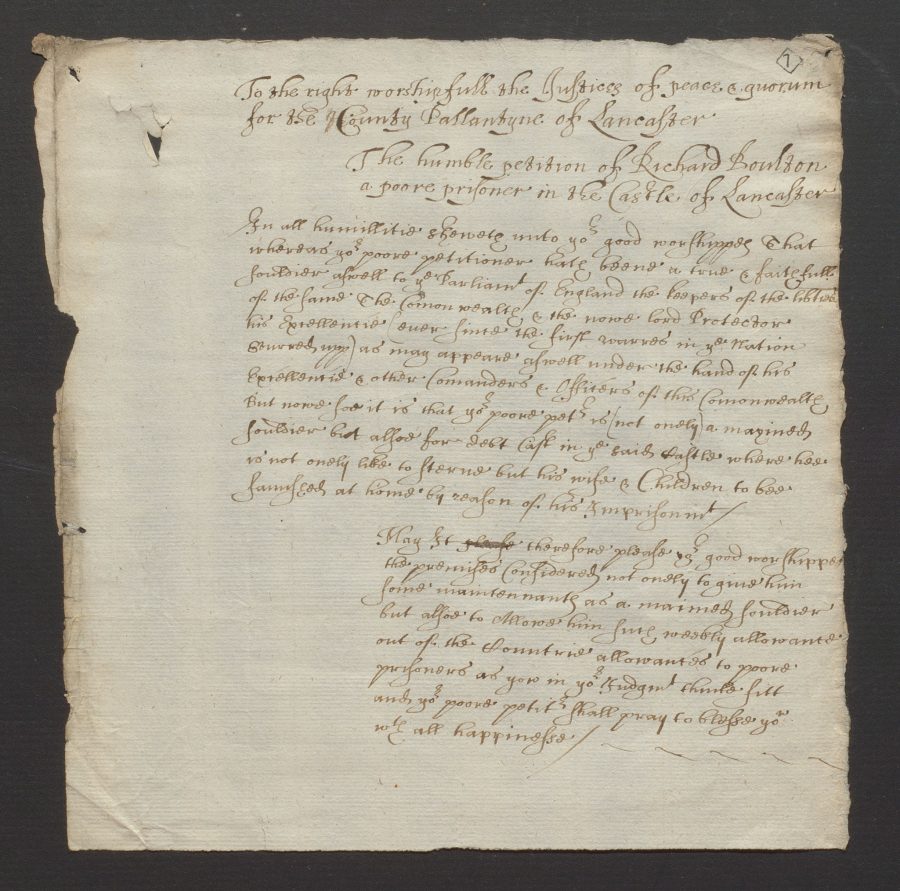 7
To the right worshipfull the Justices of peace & quorum
for the County Pallantyne of Lancaster
The humble petition of Richard Boulton
a poore prisoner in the Castle of Lancaster
In all humillitie sheweth unto yor good worshippes That
whereas yor poore petitioner hath beene a true & faithfull
souldier aswell to ye Parliamt of England the keepers of the libties
of the same The Comonwealth & the nowe lord Protector
his Excellentie (ever since the first warres in ye Nation
 upp) as may appeare aswell under the hand of his
Excellentie & other Comanders & Officers of this Comonwealth
But nowe soe it is that yor poore petr is (not onely) a maymed
souldier but alsoe for debt Cast in ye said Castle where hee
is not onely like to sterve but his wife & Children to bee
famished at home by reason of his Imprisonmt
May It please therefore please yor good worshippes
the premises Considered not onely to give him
some maintennanth as a maimed souldier
but alsoe to Allowe him such weekly allowance
out of the Countrie allowances to poore
prisoners as yow in yor Judgmt thinke fitt
and yor poore petitr shall pray to blesse yor
wth all happinesse